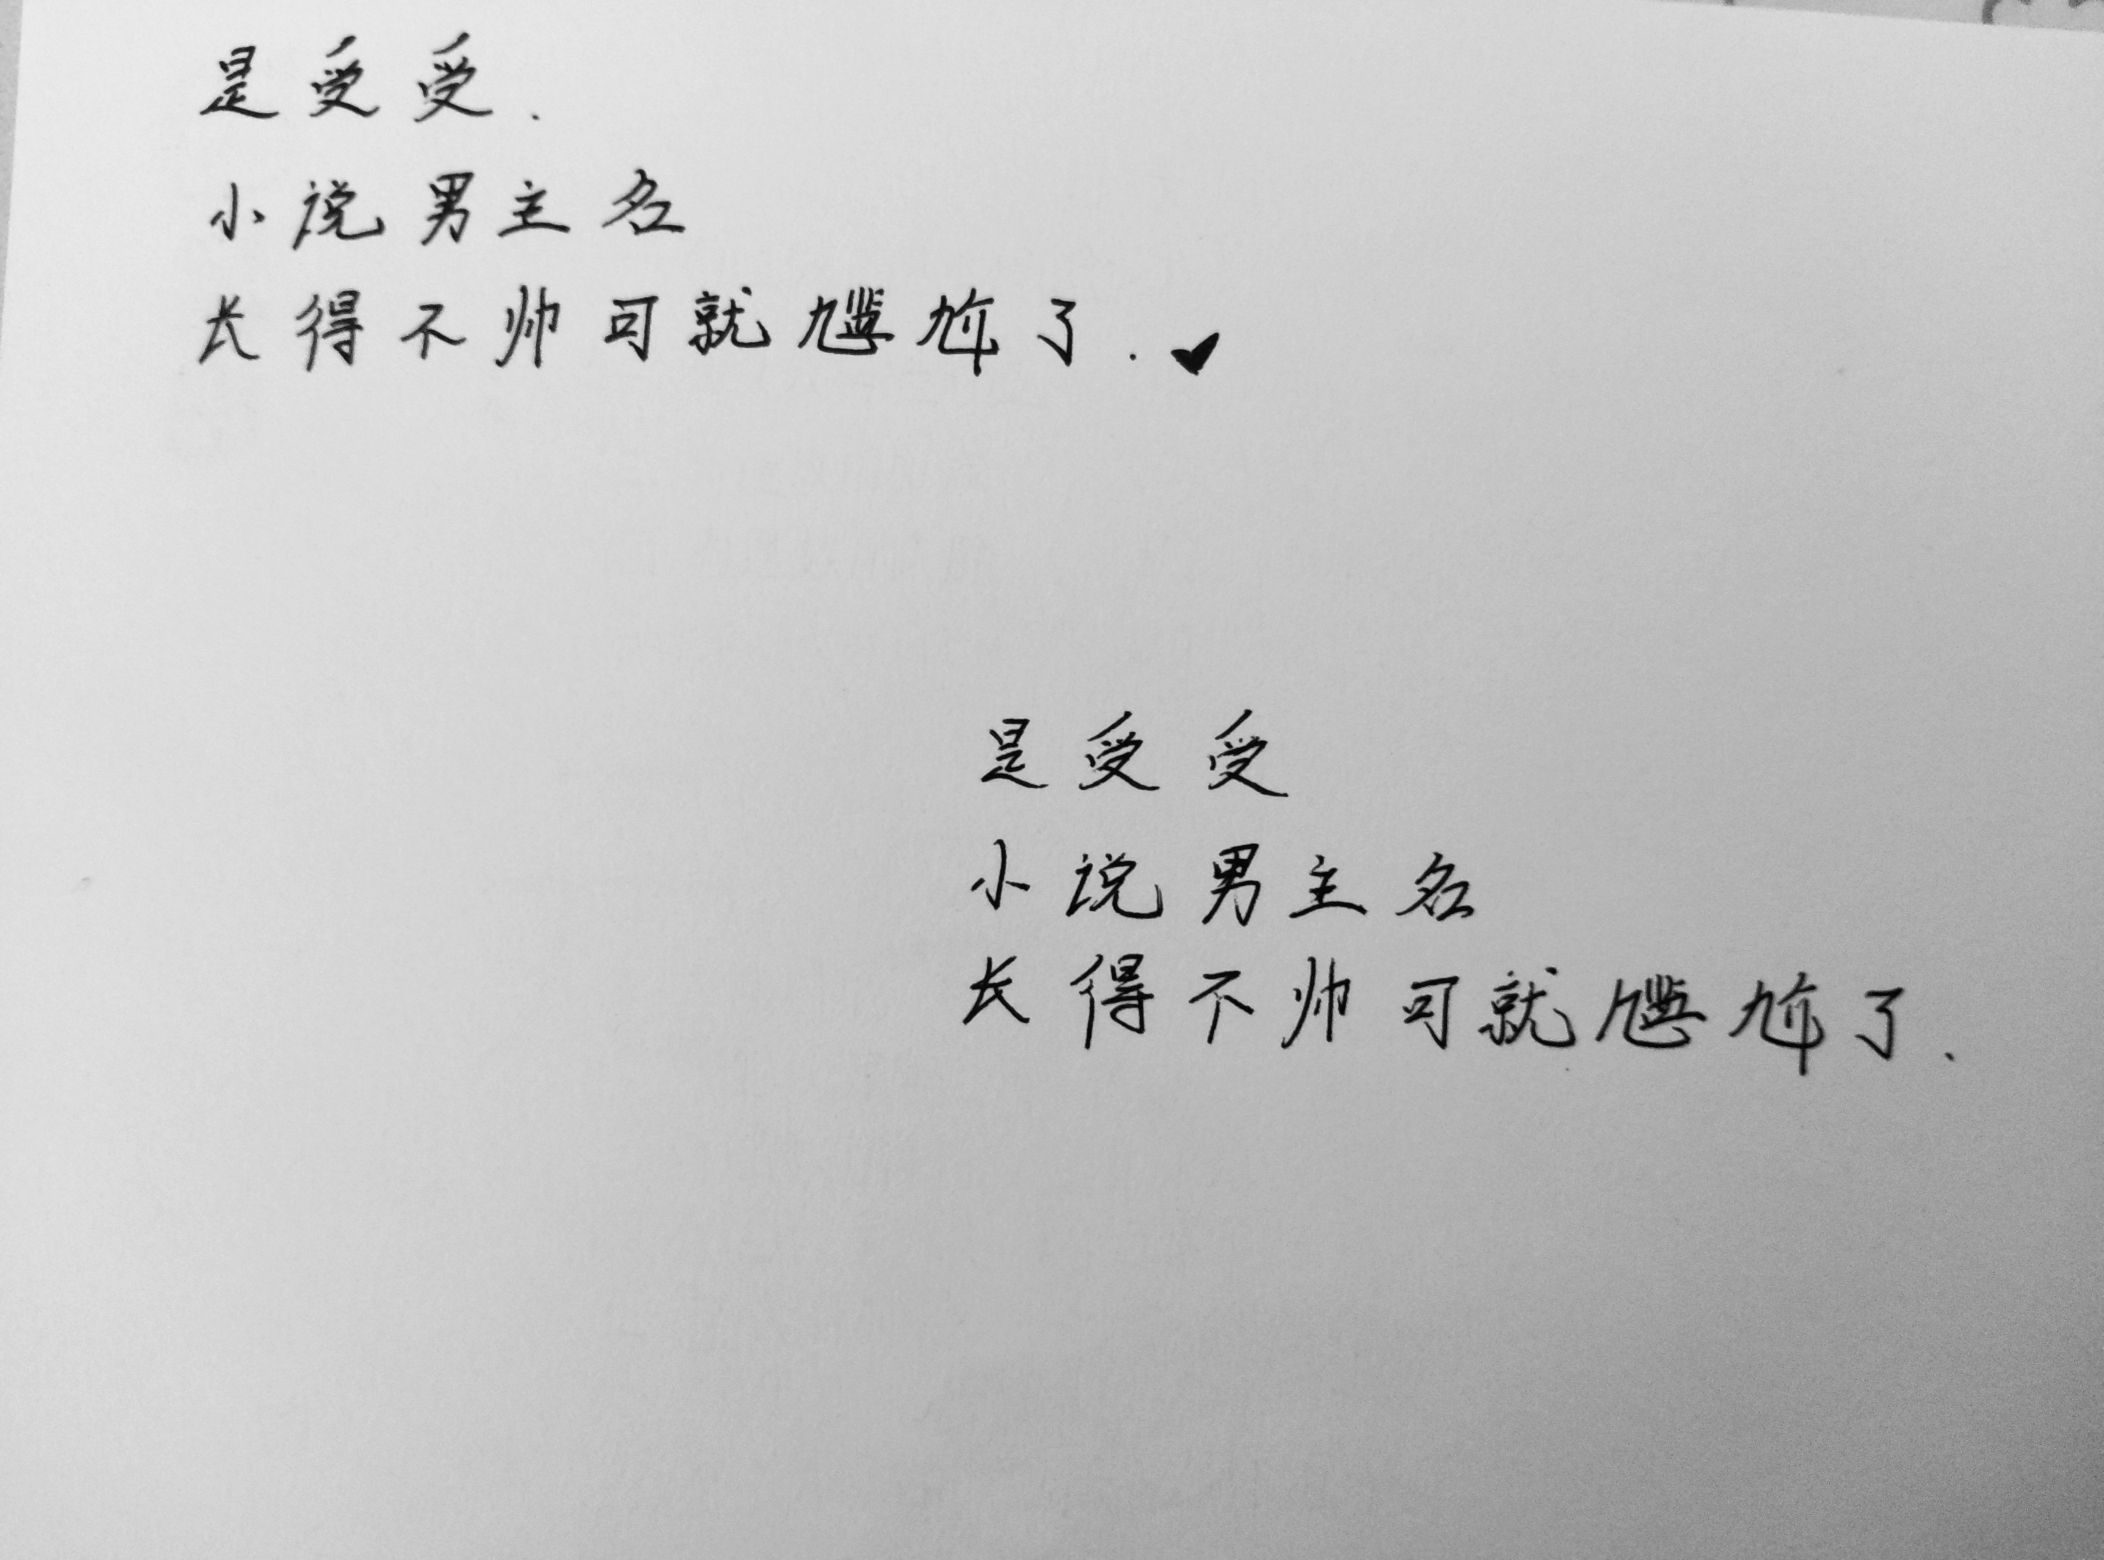 是受受.
小说男主名
长得不帅可就尴尬了.
是受受
小说男主名
长得不帅可就尴尬了.